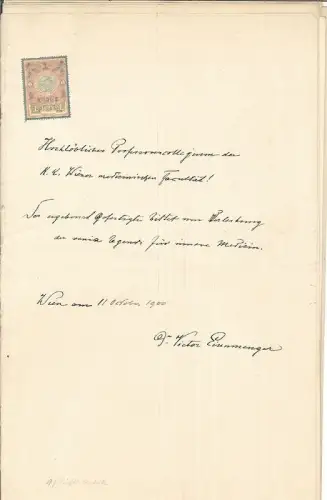 Hochlöbliches Professorencollegium der
K. K. Wiener medicinischen Facultät!
Der ergebenst Gefertigte bittet um Verleihung
der venia legendi für innere Medicin.
Wien am 11 October 1900
Dr Victor Eisenmenger